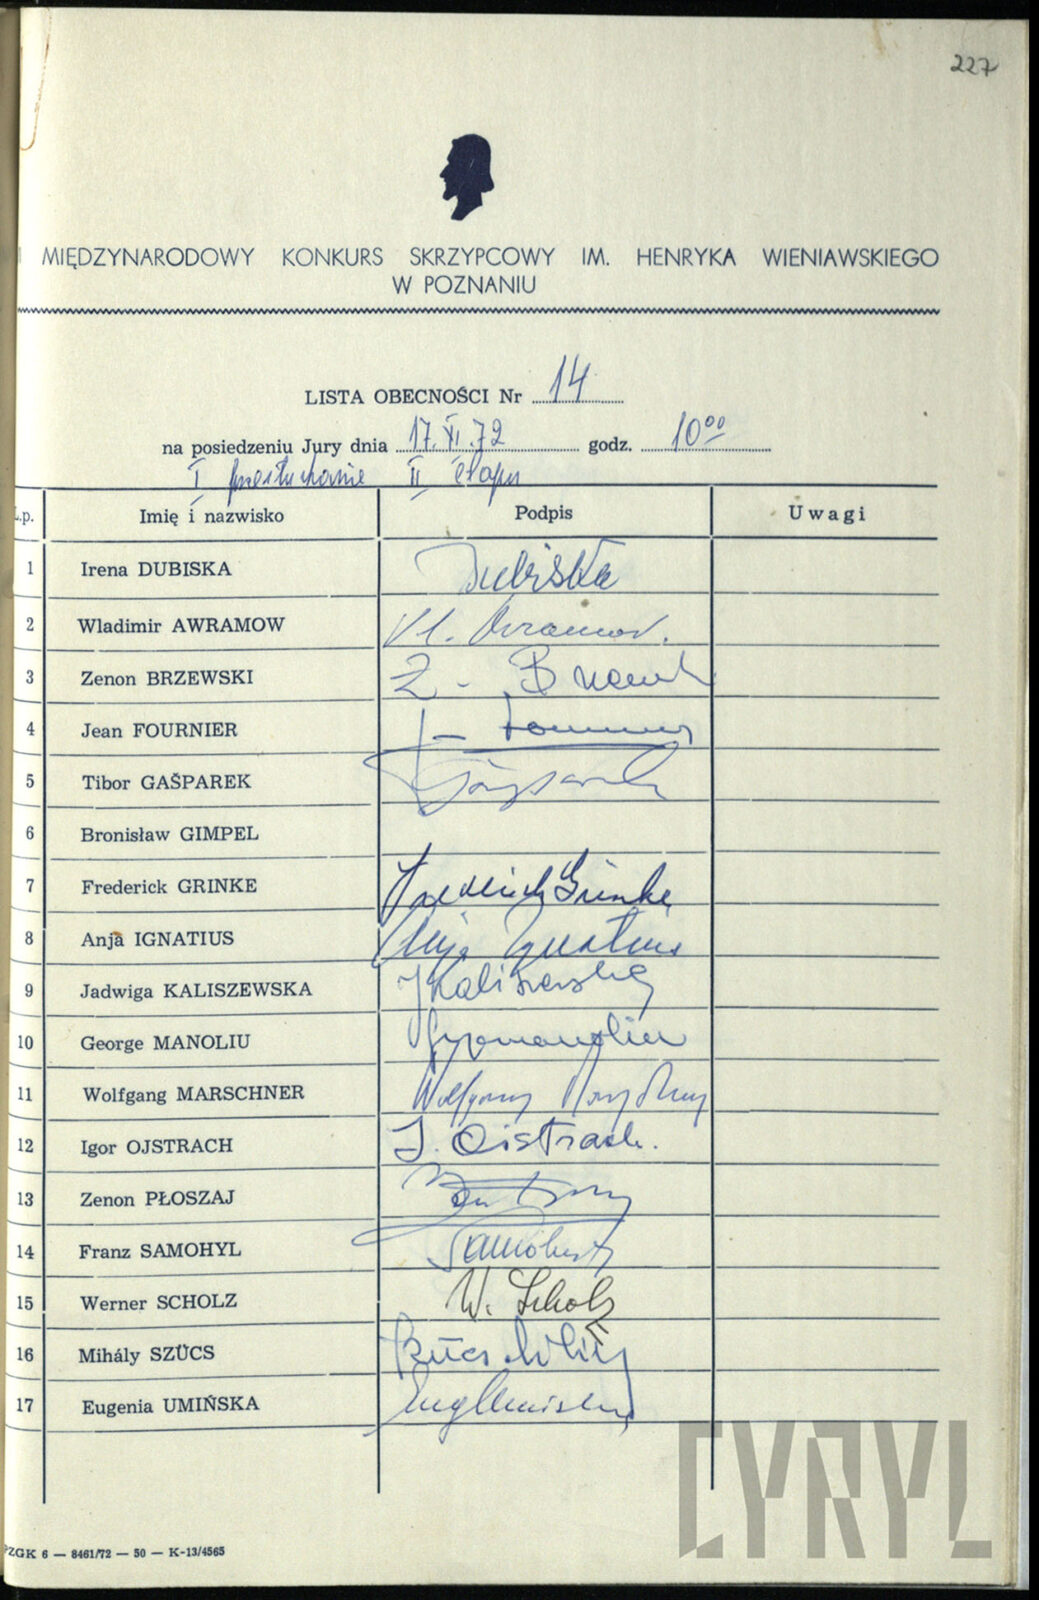 227
MIĘDZYNARODOWY KONKURS SKRZYPCOWY IM. HENRYKA WIENIAWSKIEGO
W POZNANIU
LISTA OBECNOŚCI Nr 14
na posiedzeniu Jury dnia 17.XI.72 godz. 10⁰⁰
I przesłuchanie II etapu
L.p. Imię i nazwisko Podpis Uwagi
1 Irena DUBISKA Dubiska
2 Wladimir AWRAMOW Vl. Avramov.
3 Zenon BRZEWSKI Z.
4 Jean FOURNIER
5 Tibor GAŠPAREK Gašparek
6 Bronisław GIMPEL
7 Frederick GRINKE Frederick Grinke
8 Anja IGNATIUS Anja Ignatius
9 Jadwiga KALISZEWSKA JKaliszewska
10 George MANOLIU
11 Wolfgang MARSCHNER Wolfgang Marschner
12 Igor OJSTRACH I. Oistrach.
13 Zenon PŁOSZAJ
14 Franz SAMOHYL Samohyl
15 Werner SCHOLZ W. Scholz
16 Mihály SZÜCS Szücs Mihály
17 Eugenia UMIŃSKA EugUmińska
PZGK 6 — 8461/72 — 50 — K-13/4565
CYRYL